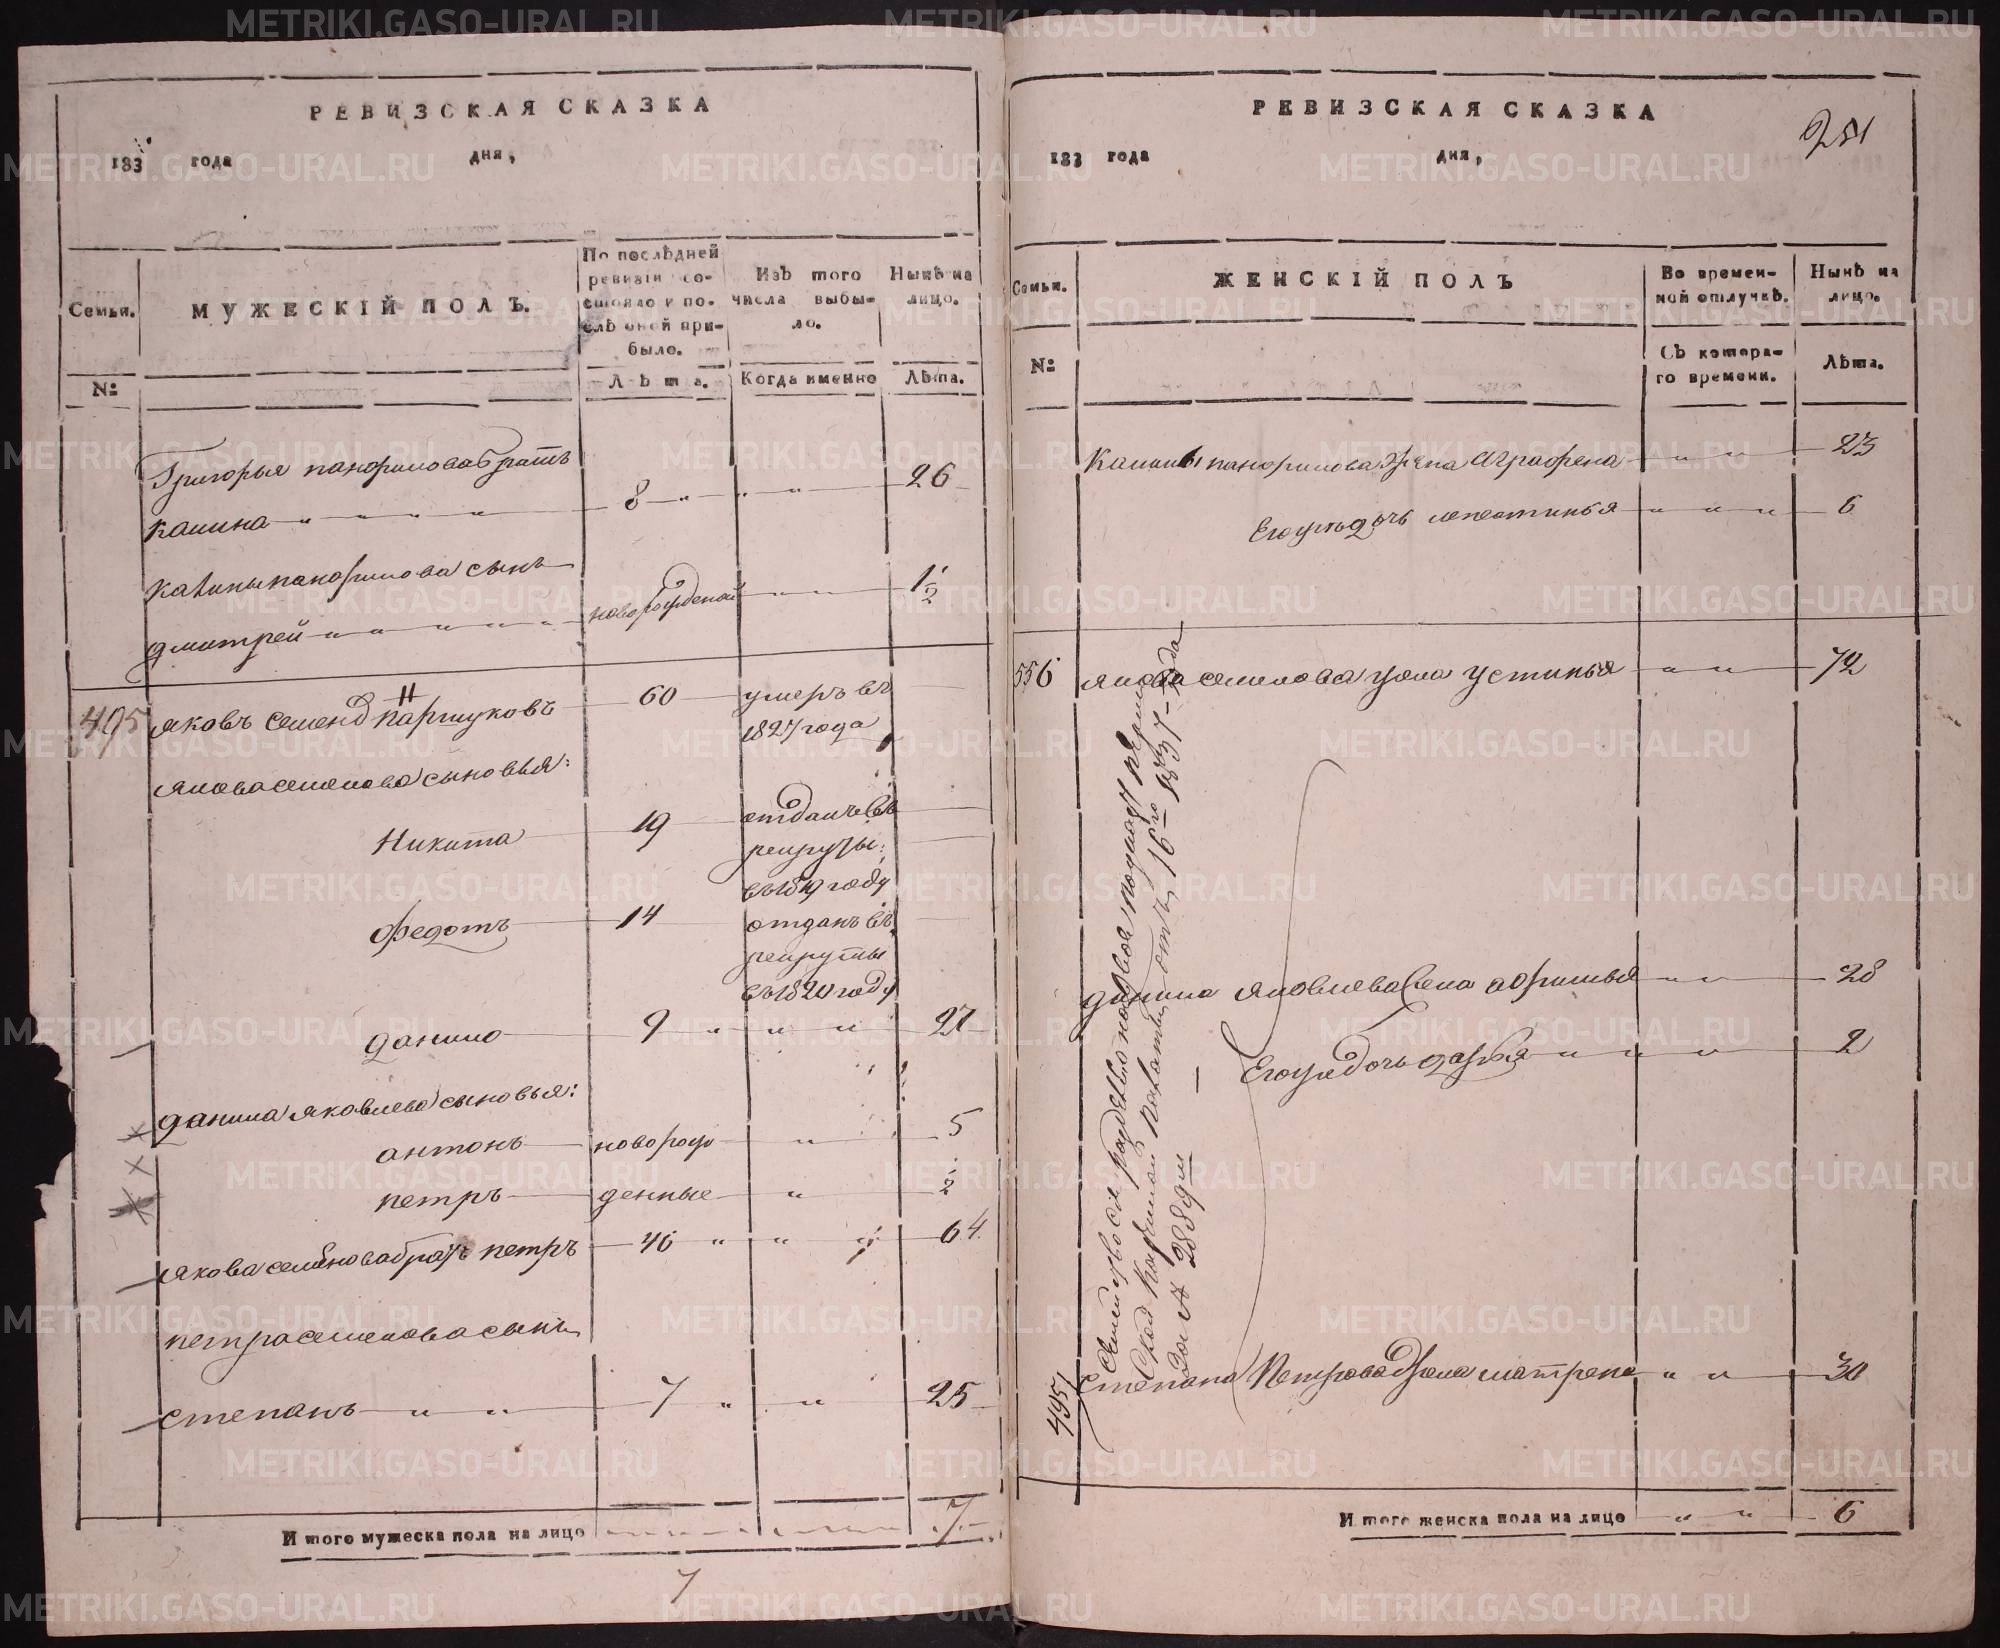 РЕВИЗСКАЯ СКАЗКА
183 года дня,
Семьи.
МУЖЕСКІЙ ПОЛЪ.
По послѣдней
ревизіи со-
стояло и по-
слѣ оной при-
было.
Изъ того
числа выбы-
ло.
Нынѣ на
лицо.
№
Лѣта.
Когда именно
Лѣта.
Григорья панфилова братъ
калина 8 26
калины панфилова сынъ
дмитрей новорожденой 1/2
495 яковъ семенов паршуковъ 60 умеръ въ
1827 года
якова семенова сыновья:
Никита 19 отданъ въ
рекруты:
въ 1819 году
федотъ 14 отданъ въ
рекруты
въ 1820 году
данило 9 27
данила яковлева сыновья:
антонъ новорож 5
петръ денные 2
якова семенова братъ петръ 46 64
петра семенова сынъ
степанъ 7 25
Итого мужеска пола на лицо 7
7
РЕВИЗСКАЯ СКАЗКА
251
183 года дня,
Семьи.
ЖЕНСКІЙ ПОЛЪ
Во времен-
ной отлучкѣ.
Нынѣ на
лицо.
№
Съ котора-
го времени.
Лѣта.
Калины панфилова жена Аграфена 23
Его дочь 6
556 якова семенова жена устинья 72
данила яковлева жена афимья 28
Его дочь дарья 2
степана Петрова жена матрена 30
495
16го 1837 года
за № 2889м
Итого женска пола на лицо 6
METRIKI.GASO-URAL.RU